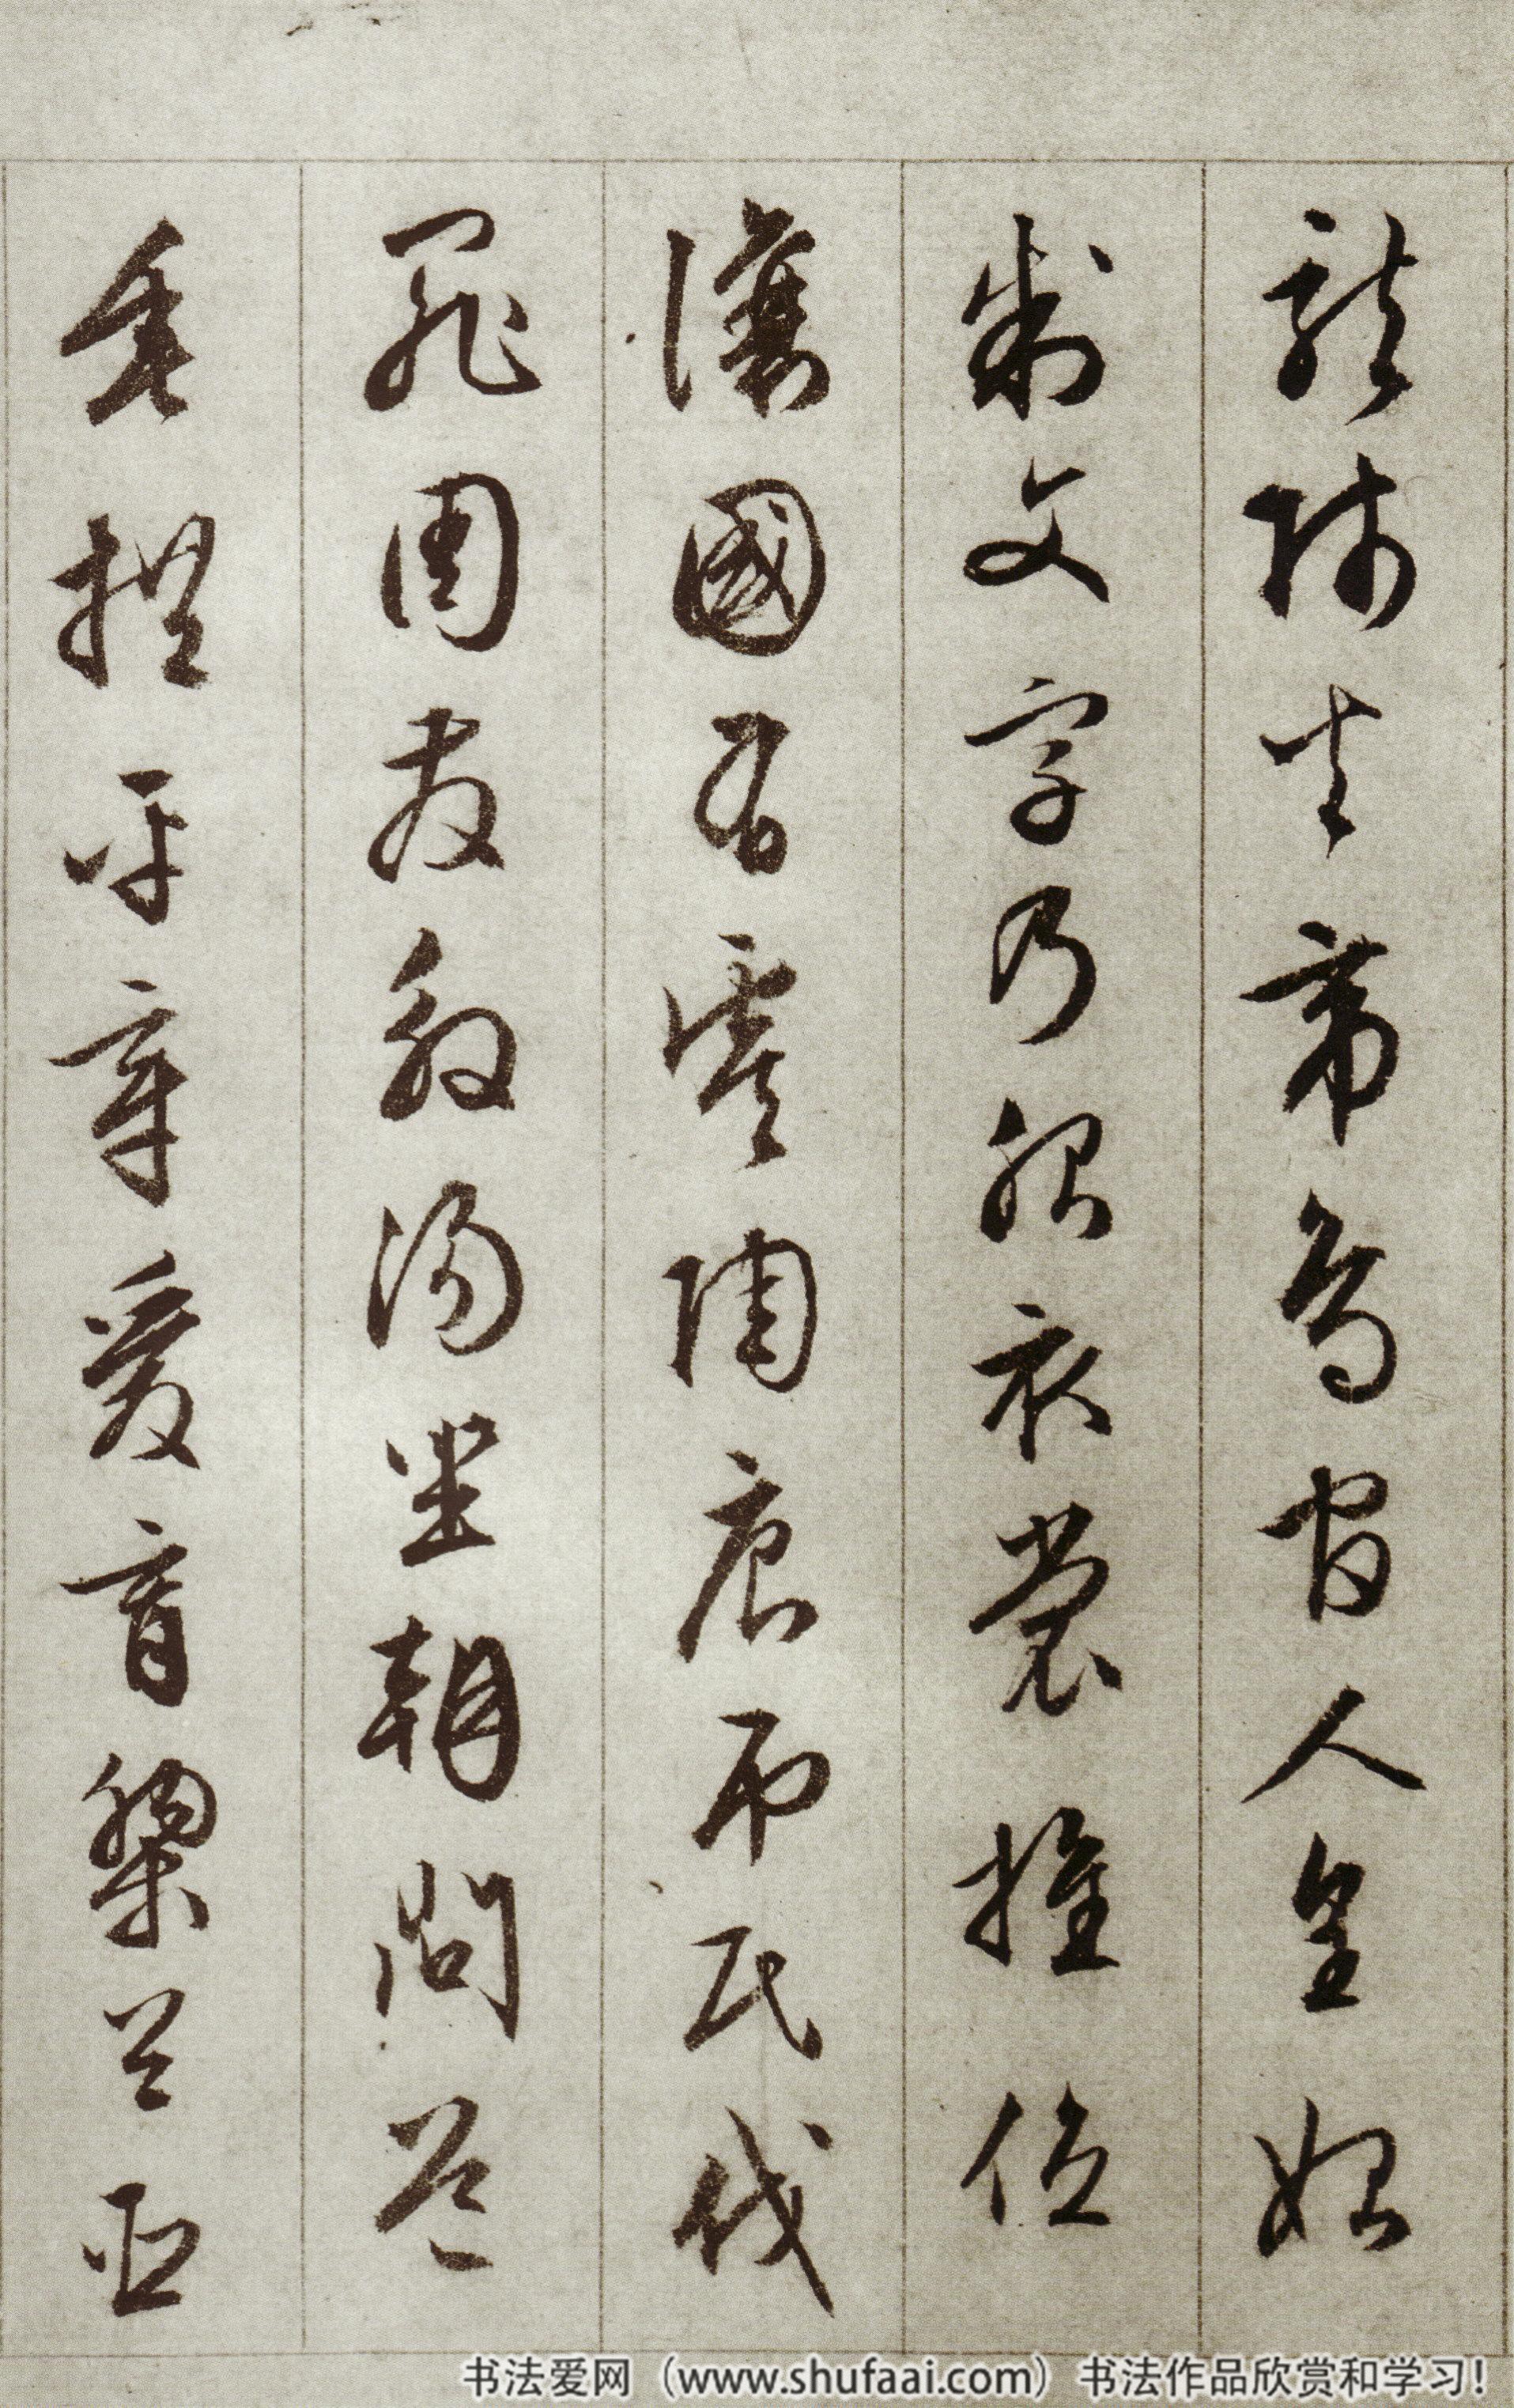 龍師火帝鳥官人皇始
制文字乃服衣裳推位
讓國有虞陶唐吊民伐
罪周發殷湯坐朝問道
垂拱平章愛育黎首臣
书法爱网（www.shufaai.com）书法作品欣赏和学习！